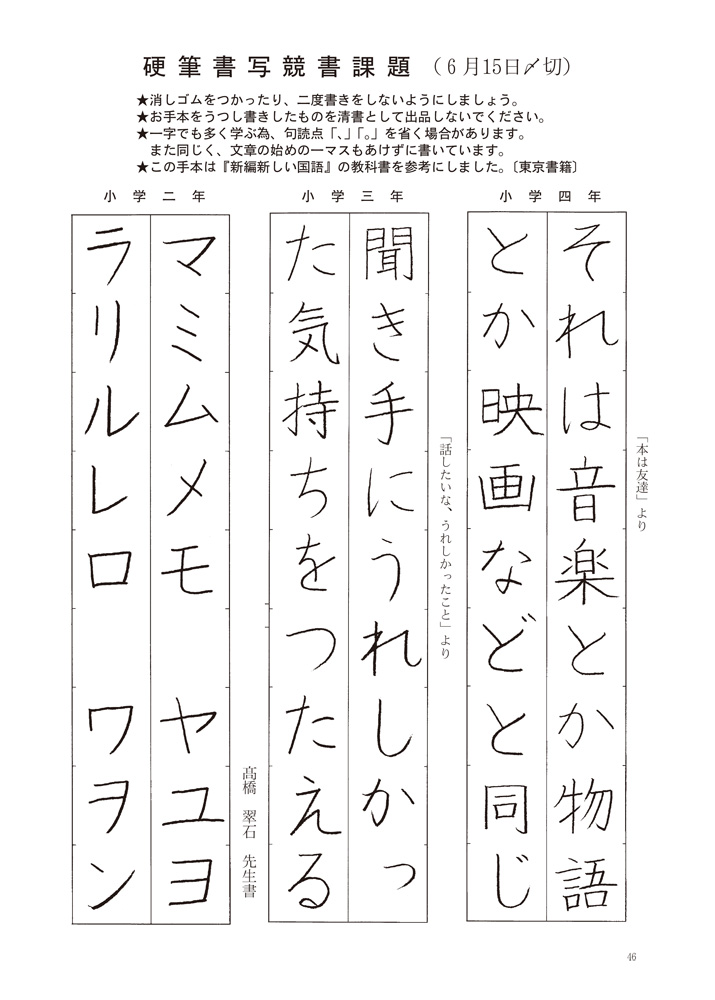 硬筆書写競書課題（6月15日〆切）
★消しゴムをつかったり、二度書きをしないようにしましょう。
★お手本をうつし書きしたものを清書として出品しないでください。
★一字でも多く学ぶ為、句読点「、」「。」を省く場合があります。
また同じく、文章の始めの一マスもあけずに書いています。
★この手本は『新編新しい国語』の教科書を参考にしました。〔東京書籍〕
小学四年
「本は友達」より
それは音楽とか物語
とか映画などと同じ
小学三年
「話したいな、うれしかったこと」より
聞き手にうれしかっ
た気持ちをつたえる
小学二年
髙橋 翠石 先生書
マミムメモ ヤユヨ
ラリルレロ ワヲン
46